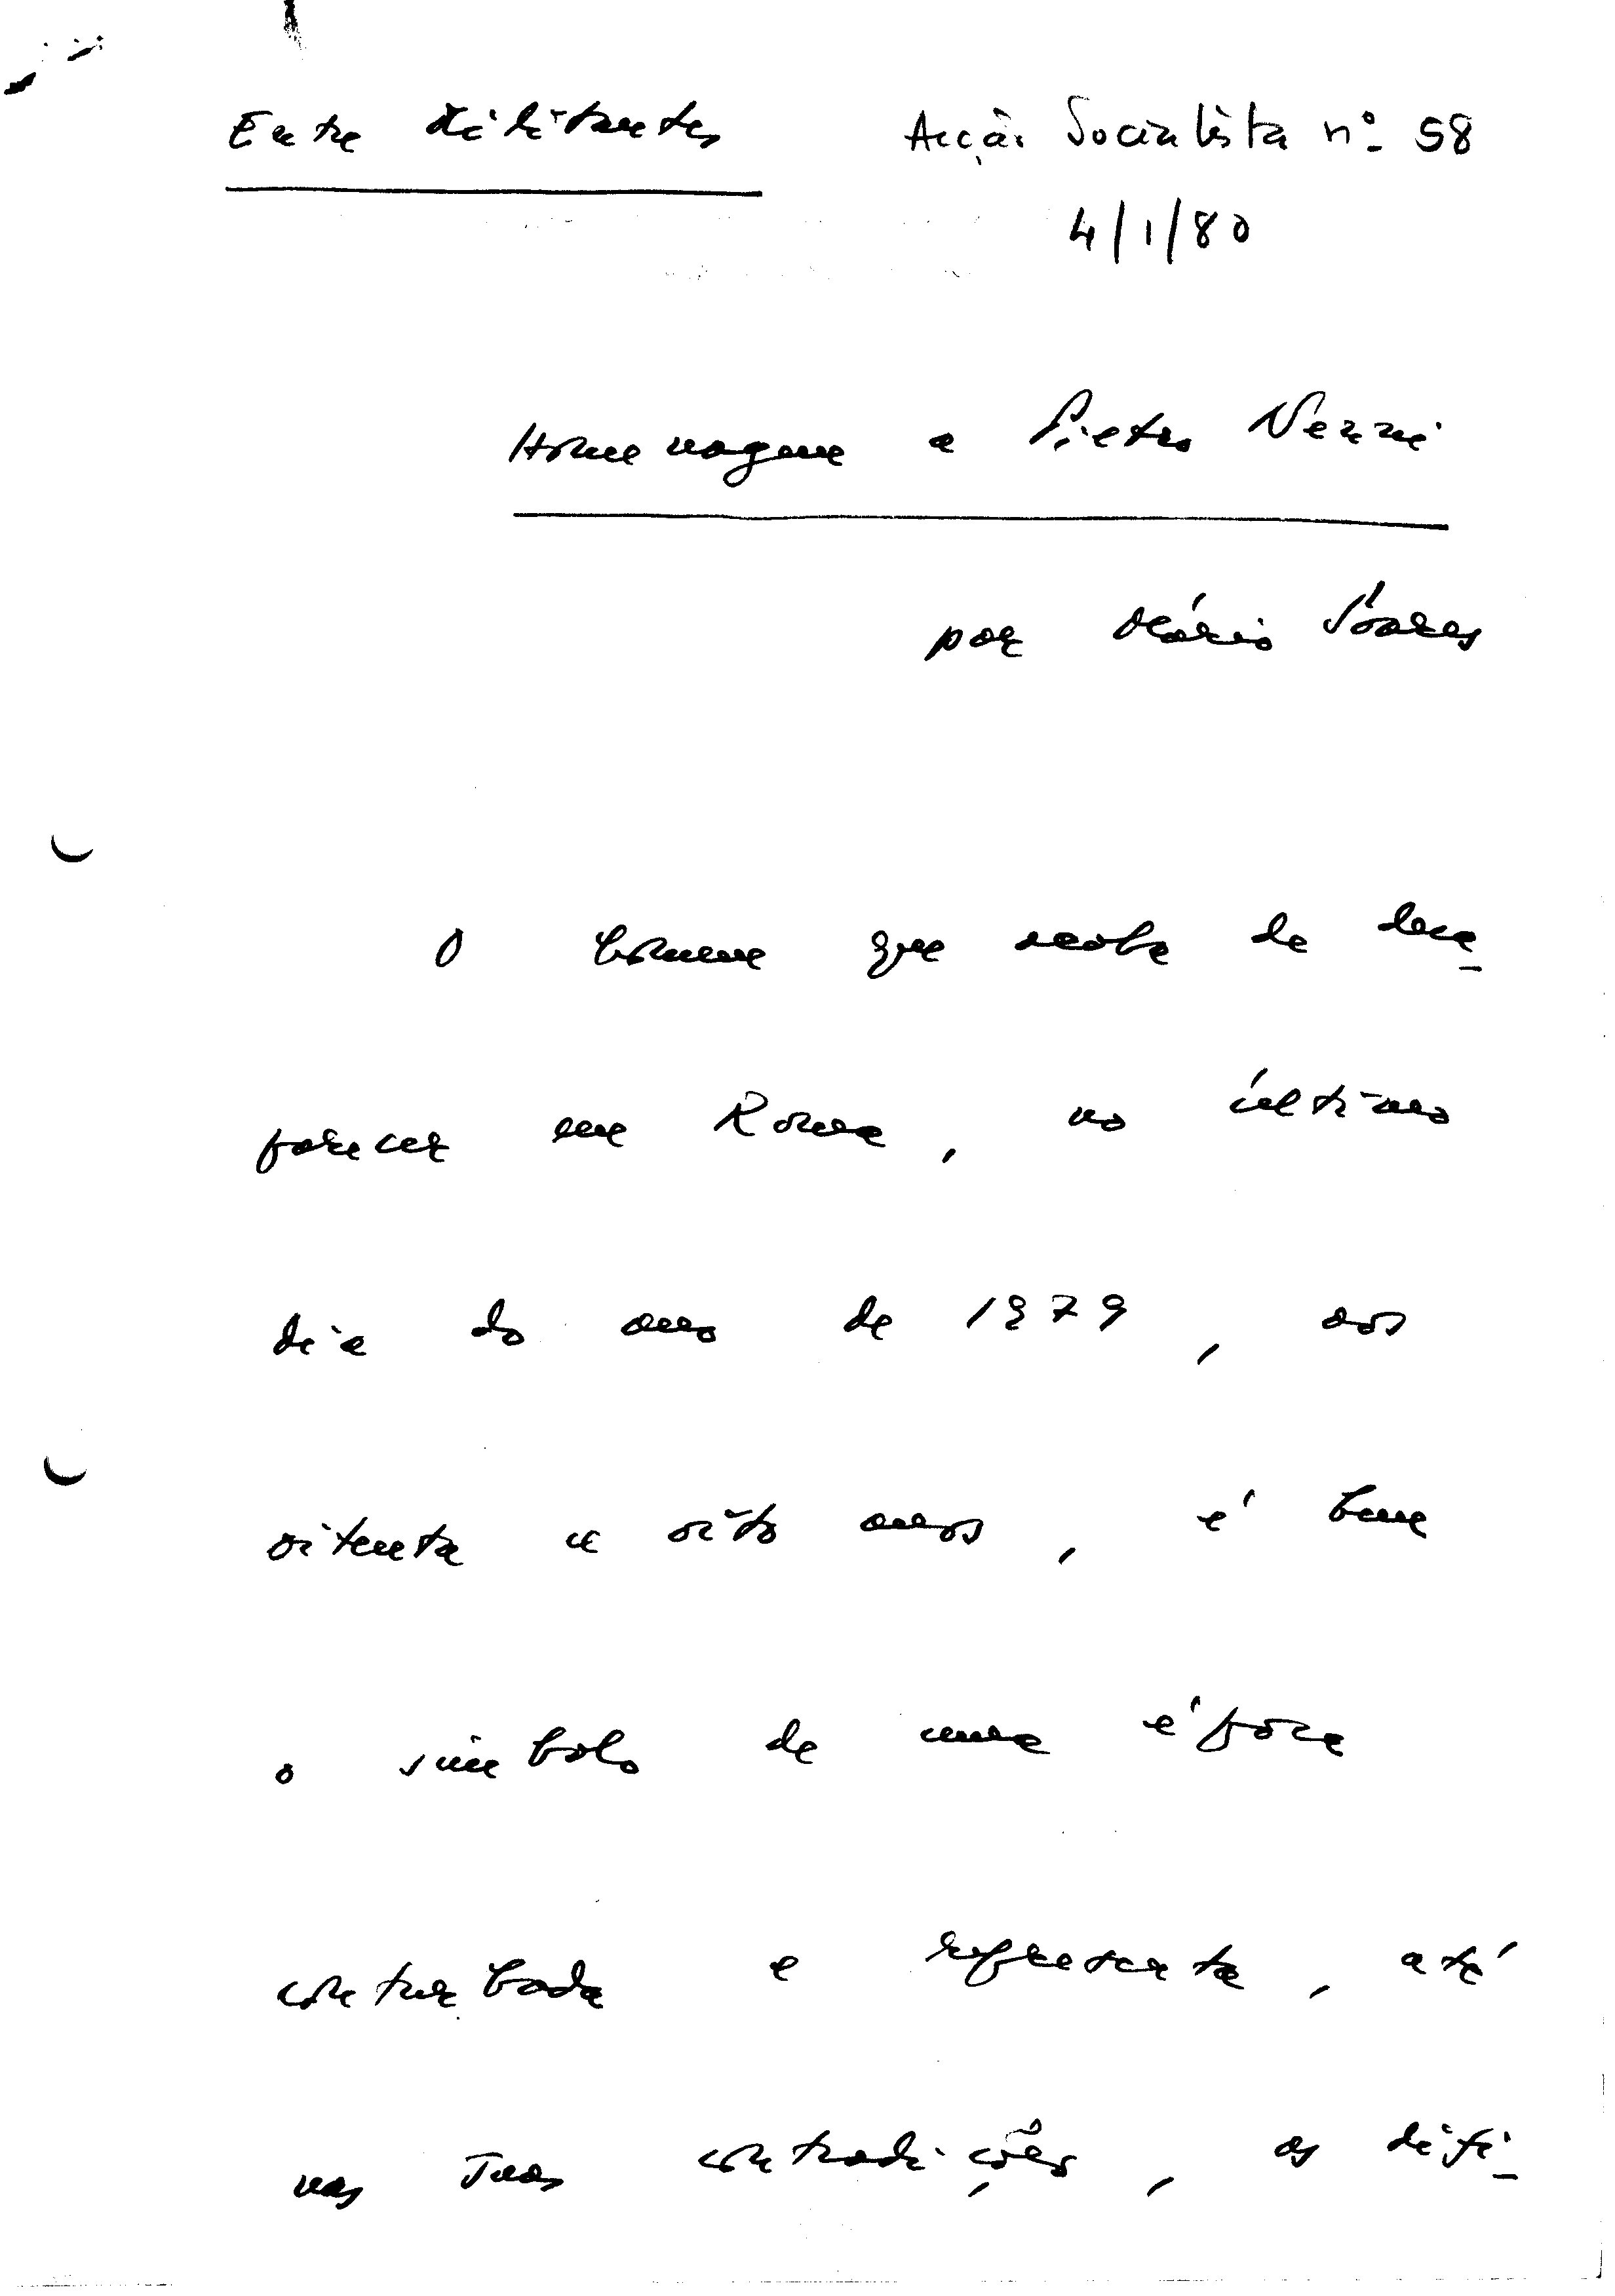 Entre Militantes
Acção Socialista nº 58
4/1/80
Homenagem a Pietro Nenni
por Mário Soares
O homem que acaba de desa-
parecer em Roma, no último
dia do ano de 1979, aos
oitenta e oito anos, é bem
o símbolo de uma época
conturbada e representa, até
nas suas contradições, as difi-